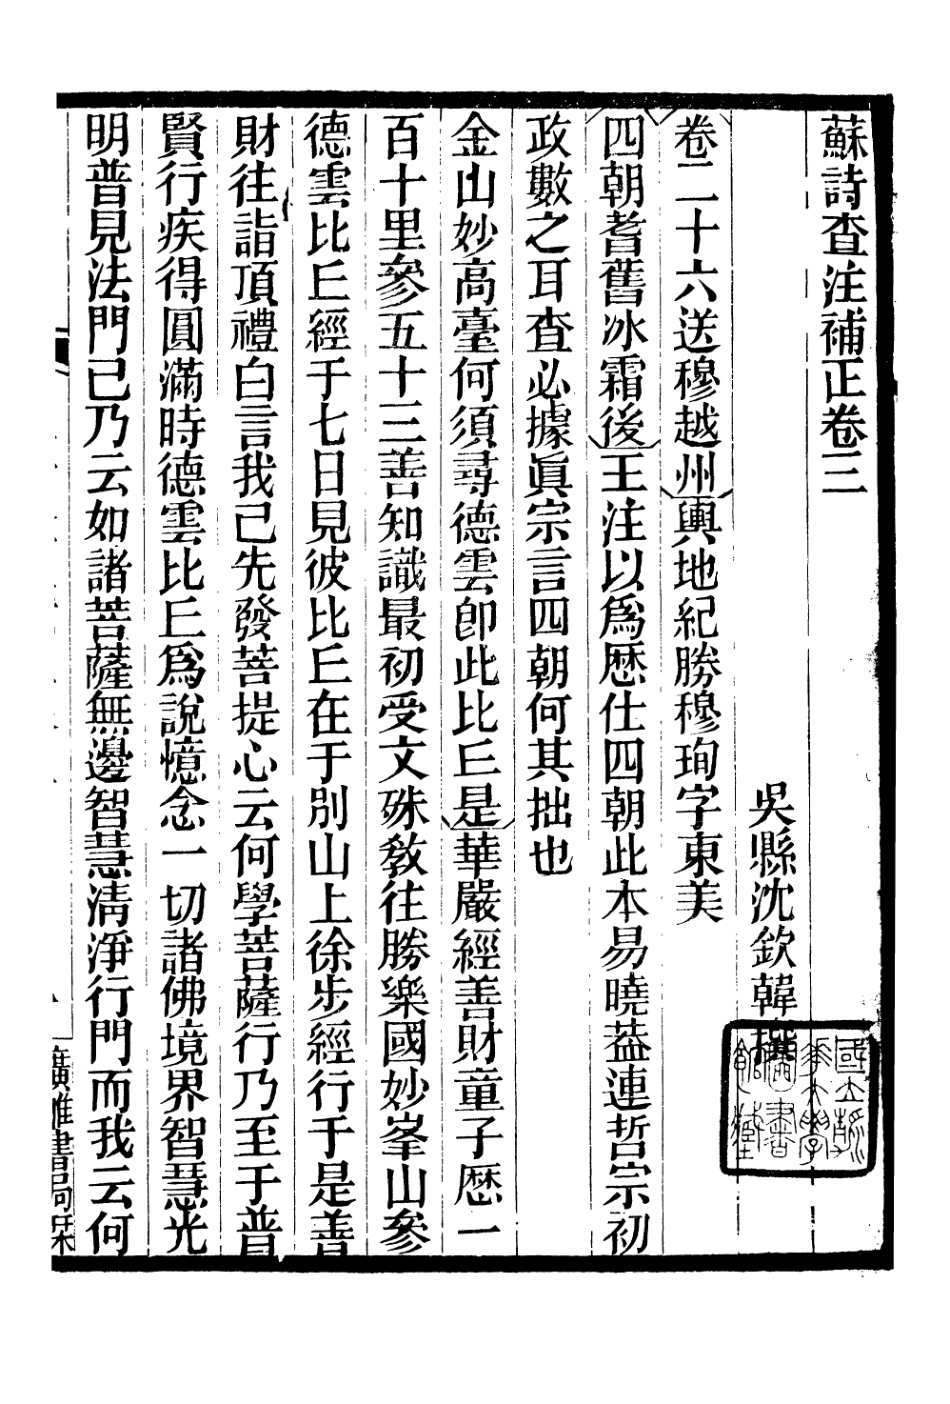 蘇詩查注補正卷三
吳縣沈欽韓撰
卷二十六送穆越州輿地紀勝穆珣字東美
四朝耆舊冰霜後王注以爲歷仕四朝此本易曉葢連哲宗初
政數之耳查必據眞宗言四朝何其拙也
金山妙高臺何須尋德雲卽此比丘是華嚴經善財童子歷一
百十里參五十三善知識最初受文殊敎往勝樂國妙峯山參
德雲比丘經于七日見彼比丘在于別山上徐步經行于是善
財往詣頂禮白言我已先發菩提心云何學菩薩行乃至于普
賢行疾得圓滿時德雲比丘爲說憶念一切諸佛境界智慧光
明普見法門已乃云如諸菩薩無邊智慧淸淨行門而我云何
廣雅書局栞
國立
華大學
圖書
館藏